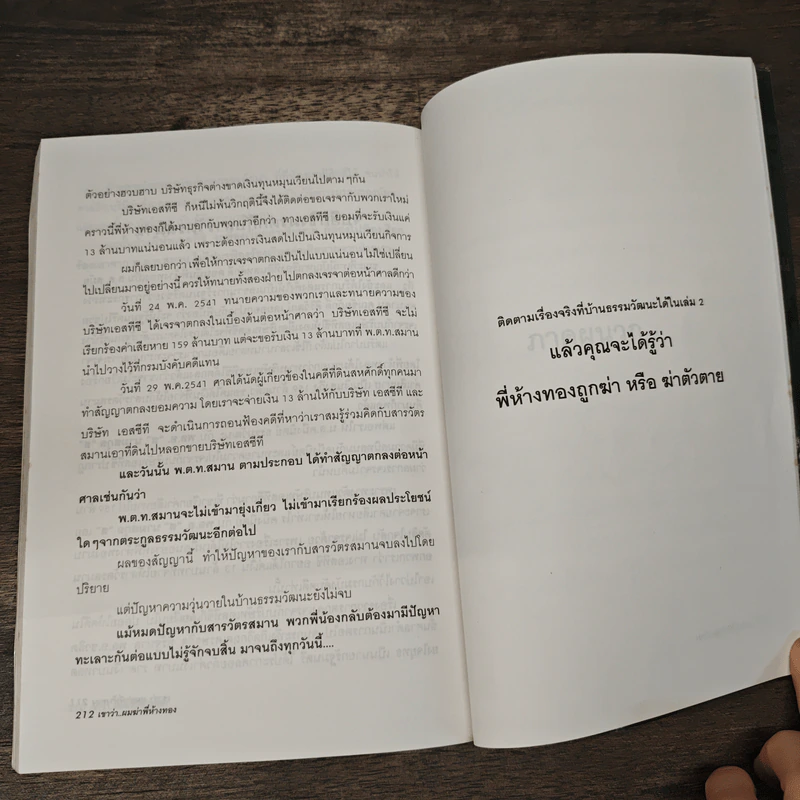 ตัวอย่างฮวบฮาบ บริษัทธุรกิจต่างขาดเงินทุนหมุนเวียนไปตามๆกัน
บริษัทเอสทีซี ก็หนีไม่พ้นวิกฤตินี้จึงได้ติดต่อขอเจรจากับพวกเราใหม่
คราวนี้พี่ห้างทองก็ได้มาบอกกับพวกเราอีกว่า ทางเอสทีซี ยอมที่จะรับเงินแค่
13 ล้านบาทแน่นอนแล้ว เพราะต้องการเงินสดไปเป็นเงินทุนหมุนเวียนกิจการ
ผมก็เลยบอกว่า เพื่อให้การเจรจาตกลงเป็นไปแบบแน่นอน ไม่ใช่เปลี่ยน
ไปเปลี่ยนมาอยู่อย่างนี้ ควรให้ทนายทั้งสองฝ่าย ไปตกลงเจรจาต่อหน้าศาลดีกว่า
วันที่ 24 พ.ค. 2541 ทนายความของพวกเราและทนายความของ
บริษัทเอสทีซี ได้เจรจาตกลงในเบื้องต้นต่อหน้าศาลว่า บริษัทเอสทีซี จะไม่
เรียกร้องค่าเสียหาย 159 ล้านบาท แต่จะขอรับเงิน 13 ล้านบาทที่ พ.ต.ท.สมาน
นำไปวางไว้ที่กรมบังคับคดีแทน
วันที่ 29 พ.ค.2541 ศาลได้นัดผู้เกี่ยวข้องในคดีที่ดินสหศักดิ์ทุกคนมา
ทำสัญญาตกลงยอมความ โดยเราจะจ่ายเงิน 13 ล้านให้กับบริษัท เอสทีซี และ
บริษัท เอสทีซี จะดำเนินการถอนฟ้องคดีที่หาว่าเราสมรู้ร่วมคิดกับสารวัตร
สมานเอาที่ดินไปหลอกขายบริษัทเอสทีซี
และวันนั้น พ.ต.ท.สมาน ตามประกอบ ได้ทำสัญญาตกลงต่อหน้า
ศาลเช่นกันว่า
พ.ต.ท.สมานจะไม่เข้ามายุ่งเกี่ยว ไม่เข้ามาเรียกร้องผลประโยชน์
ใดๆจากตระกูลธรรมวัฒนะอีกต่อไป
ผลของสัญญานี้ ทำให้ปัญหาของเรากับสารวัตรสมานจบลงไปโดย
ปริยาย
แต่ปัญหาความวุ่นวายในบ้านธรรมวัฒนะยังไม่จบ
แม้หมดปัญหากับสารวัตรสมาน พวกพี่น้องกลับต้องมามีปัญหา
ทะเลาะกันต่อแบบไม่รู้จักจบสิ้น มาจนถึงทุกวันนี้....
212 เขาว่า..ผมฆ่าพี่ห้างทอง
ติดตามเรื่องจริงที่บ้านธรรมวัฒนะได้ในเล่ม 2
แล้วคุณจะได้รู้ว่า
พี่ห้างทองถูกฆ่า หรือ ฆ่าตัวตาย